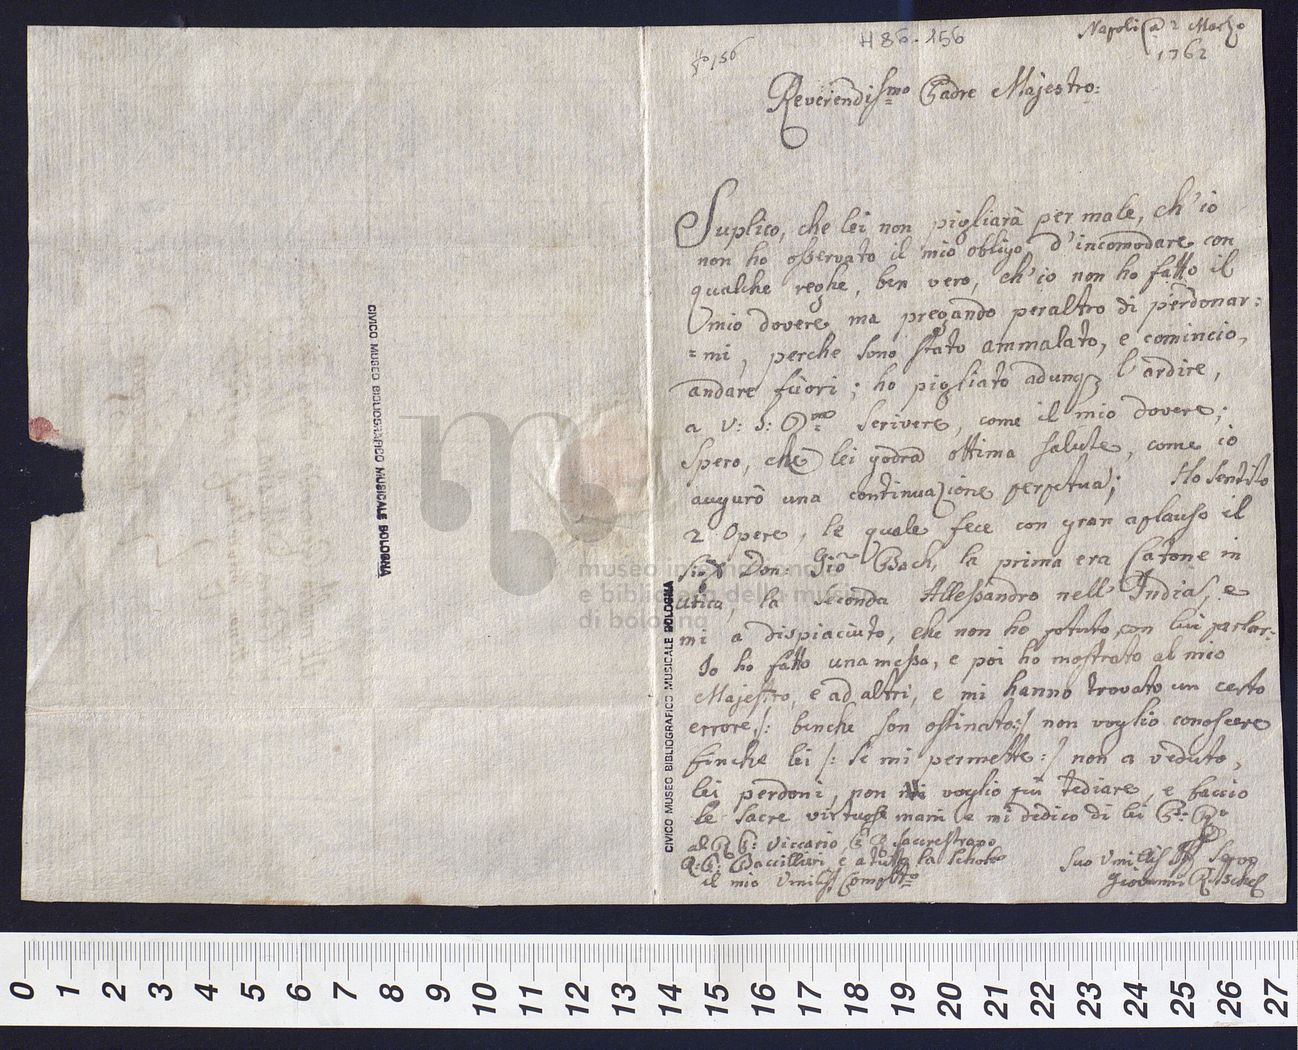 Napoli 2 Marzo
1762
H 86-156
156
Reverendissmo Padre Majestro:
Suplico, che lei non pigliarà per male, ch'io
non ho osservato il mio obligo d'incomodare con
qualche reghe, ben vero, ch'io non ho fatto il
mio dovere, ma pregando peraltro di perdonar:
=mi, perche sono stato ammalato, e comincio,
andare fuori; ho pigliato adunq l'ardire,
a V: S: scrivere, come il mio dovere;
spero, che lei godrà ottima salute, come io
augurò una continuazione perpetua; Ho sentito
2 Opere, le quale fece con gran aplauso il
Don: Gio Bach, la prima era Catone in
utica, la seconda Allessandro nell'Indias, e
mi a dispiaciuto, che non ho potuto con lui parlar:
Io ho fatto una messa, e poi ho mostrato al mio
Majestro, e ad altri, e mi hanno trovato un certo
errore, /: benche son ostinato:/ non voglio conoscere
finche lei /: se mi permette:/ non a veduto,
lei perdoni, non voglio più tediare, e baccio
le sacre virtuose mani e mi dedico di lei
al Viccario,
Baccillieri, e a tutta la schola
il mio Umilis
Suo Umiliss
Giovanni
CIVICO MUSEO BIBLIOGRAFICO MUSICALE BOLOGNA
CIVICO MUSEO BIBLIOGRAFICO MUSICALE BOLOGNA
museo internazionale
e biblioteca della musica
di bologna
0 1 2 3 4 5 6 7 8 9 10 11 12 13 14 15 16 17 18 19 20 21 22 23 24 25 26 27